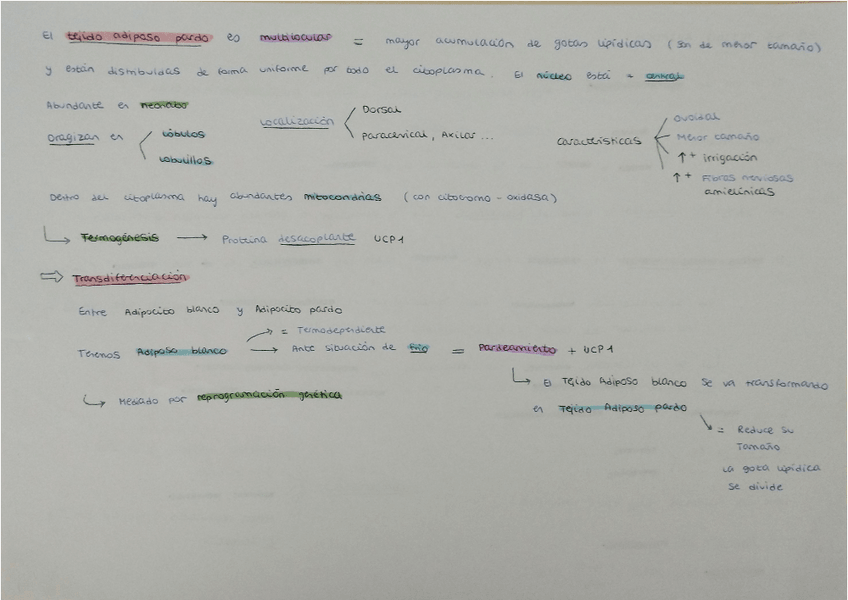 El tejido adiposo pardo es multilocular = mayor acumulación de gotas lipídicas (son de menor tamaño)
y están distribuidas de forma uniforme por todo el citoplasma. El núcleo está = central
Abundante en neonato
Oragizan en
lóbulos
lobulillos
Localización
Dorsal
Paracervical, Axilar ...
características
Ovoidal
Menor tamaño
↑ + irrigación
↑ + Fibras nerviosas
amielínicas
Dentro del citoplasma hay abundantes mitocondrias (con citocromo - oxidasa)
Termogénesis → Proteína desacoplante UCP1
⇒ Transdiferenciación
Entre Adipocito blanco y Adipocito pardo
= Termodependiente
Tenemos Adiposo blanco → Ante situación de frio = Pardeamiento + UCP1
El Tejido Adiposo blanco se va transformando
en Tejido Adiposo pardo
Mediado por reprogramación genética
= Reduce su
Tamaño
La gota lipídica
se divide